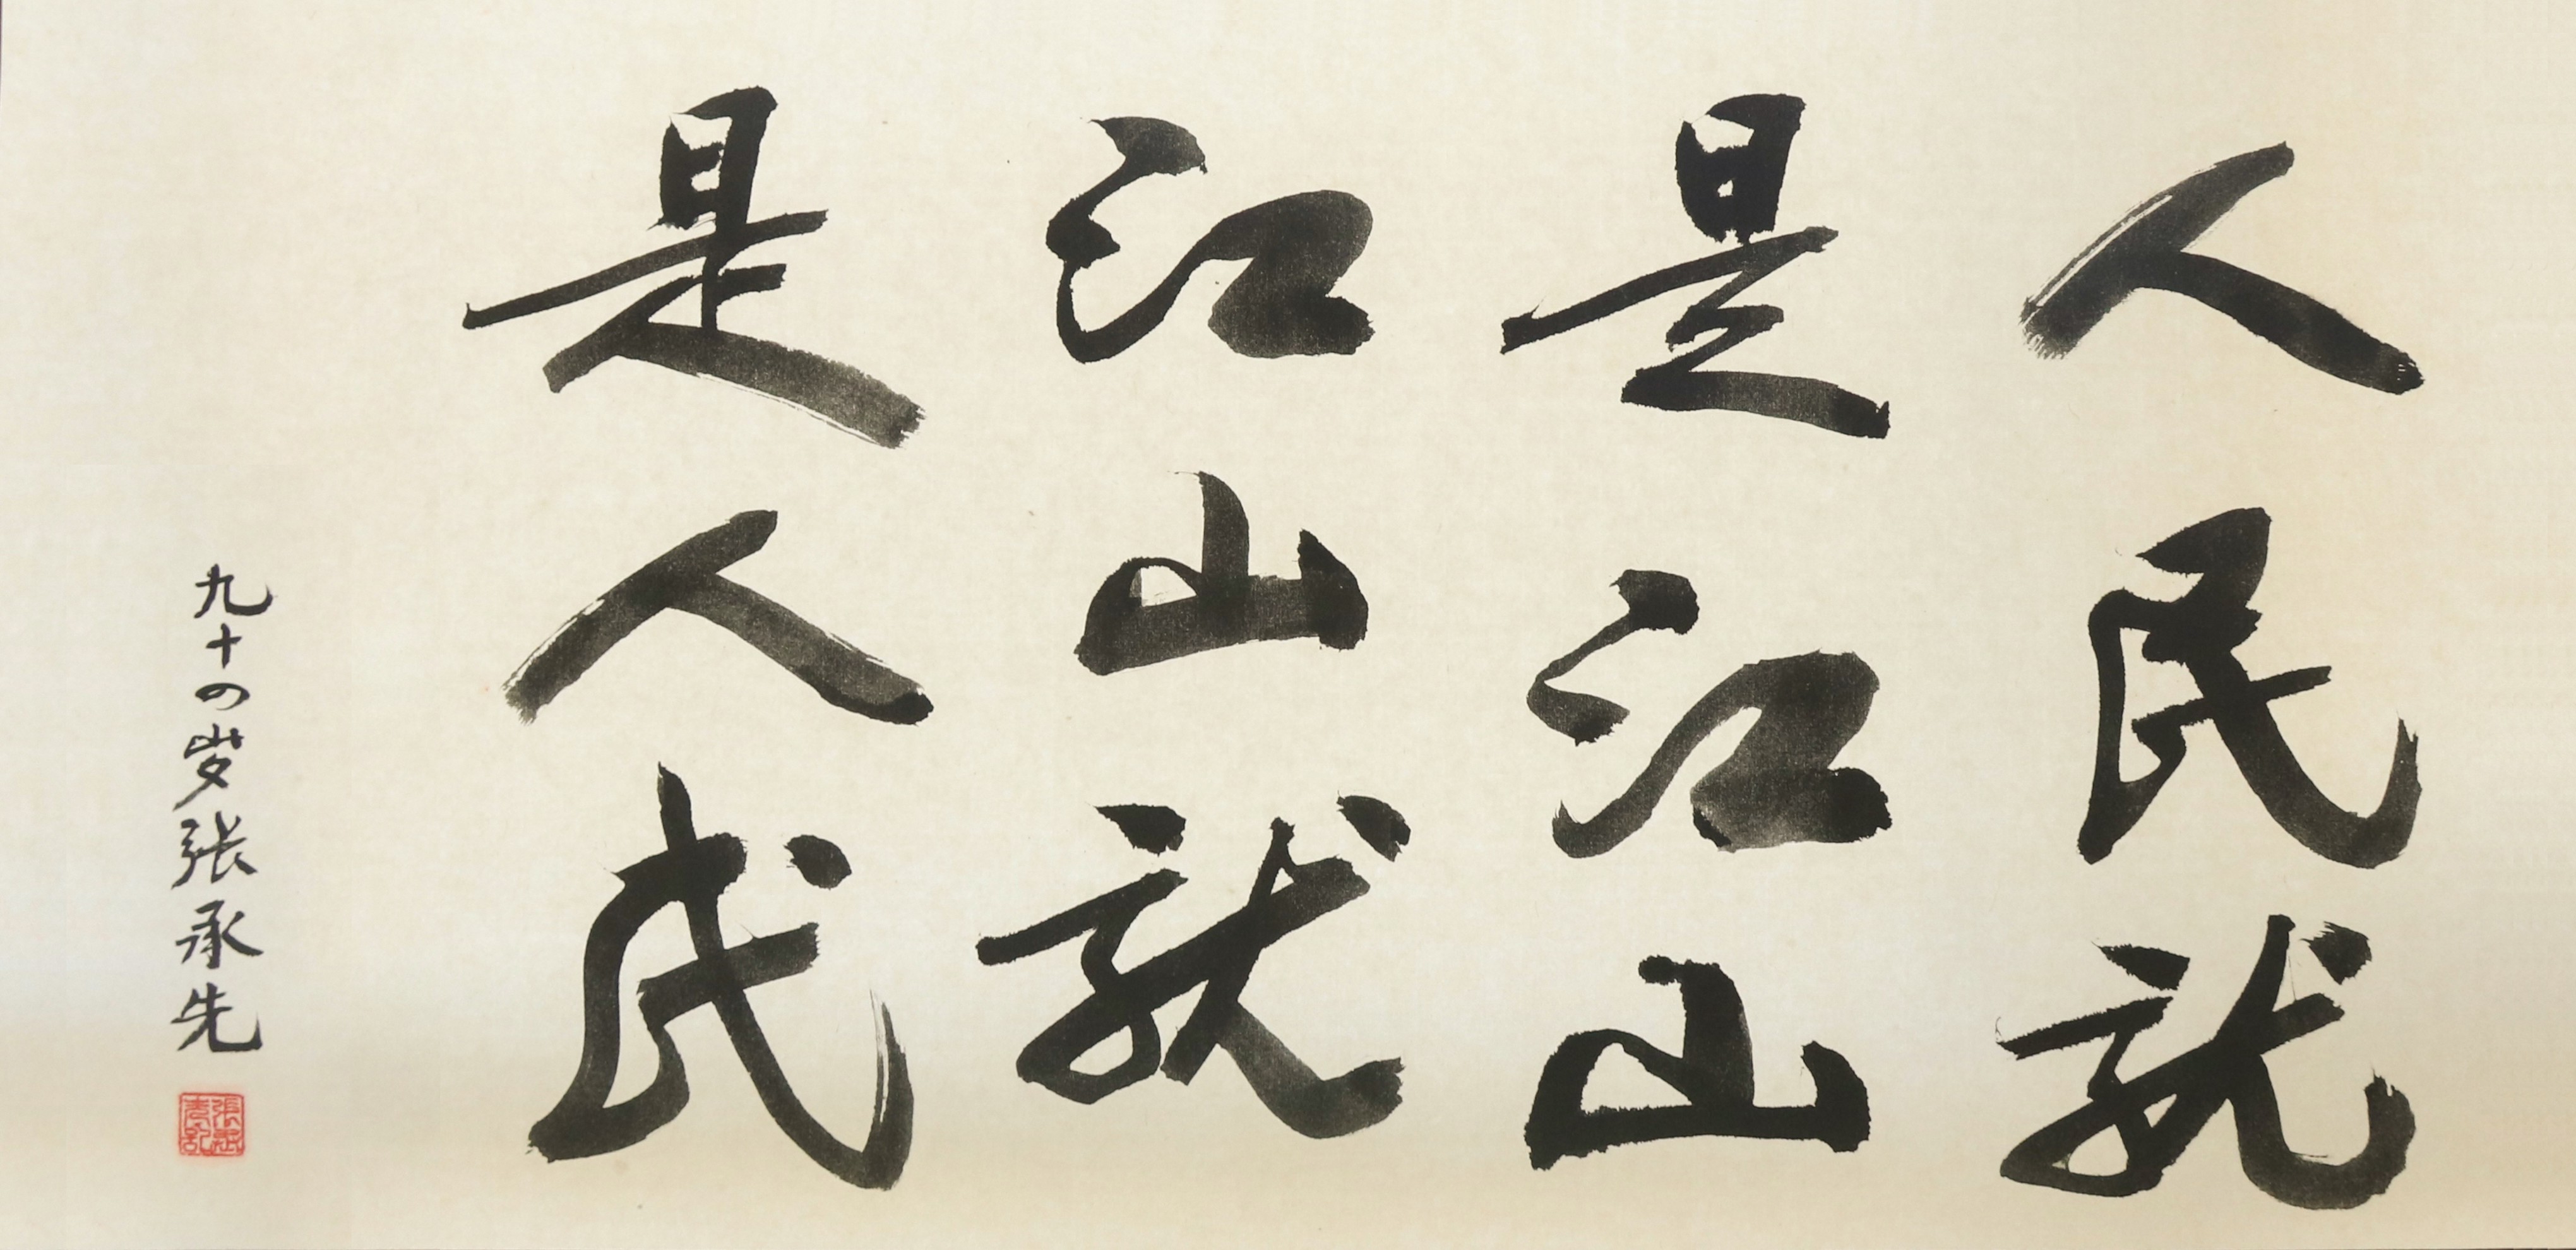 人民就
是江山
江山就
是人民
九十四岁张承先